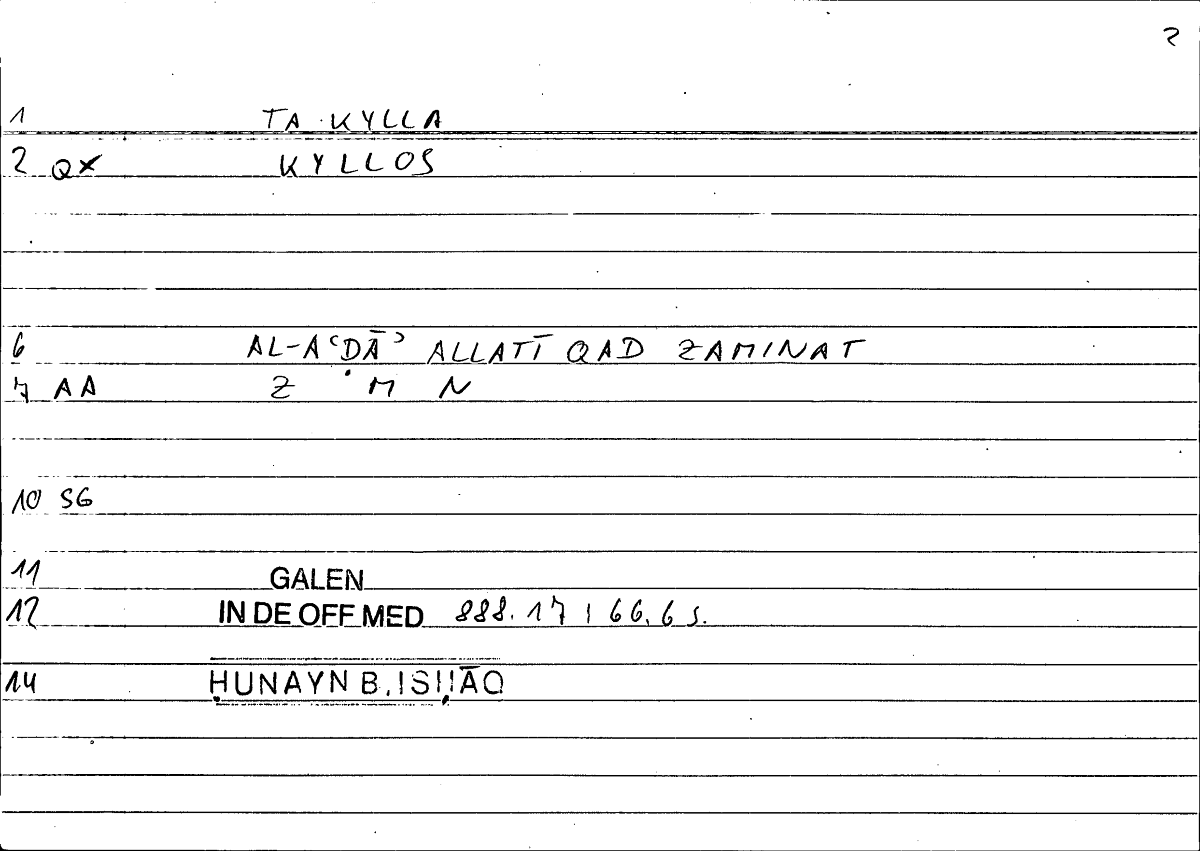 2
1 TA KYLLA
2 QX KYLLOS
6 AL-AʿḌĀʾ ALLATĪ QAD ZAMINAT
7 AA Z M N
10 SG
11 GALEN
12 IN DE OFF MED 888.17 ; 66,6 S.
14 ḤUNAYN B. ISḤĀQ